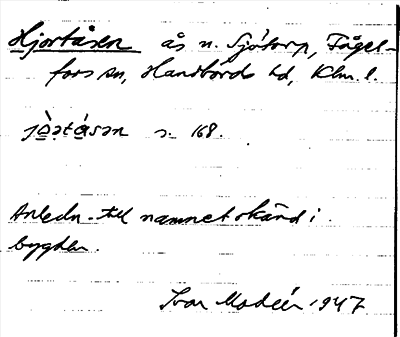 Hjortåsen ås n. Sjötorp, Fågel-
fors sn, Handbörds hd, Klm. l.
s. 168.
Anledn. till namnet okänd i
bygden.
Ivar Modéer 1947